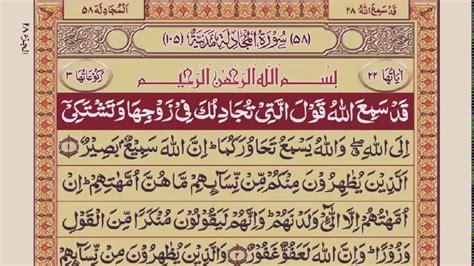 قَدْ سَمِعَ اللهُ ٢٨ اَلْمُجَادِلَة ٥٨
الجزء ٢٨
(٥٨) سُوْرَةُ الْمُجَادَلَةِ مَدَنِيَّةٌ (١٠٥)
اٰيَاتُهَا ٢٢ بِسْمِ اللهِ الرَّحْمٰنِ الرَّحِيْمِ رُكُوْعَاتُهَا ٣
قَدْ سَمِعَ اللهُ قَوْلَ الَّتِيْ تُجَادِلُكَ فِيْ زَوْجِهَا وَتَشْتَكِيْۤ
اِلَى اللهِ ۖ وَاللهُ يَسْمَعُ تَحَاوُرَكُمَا ؕ اِنَّ اللهَ سَمِيْعٌۢ بَصِيْرٌ ١
اَلَّذِيْنَ يُظٰهِرُوْنَ مِنْكُمْ مِّنْ نِّسَآئِهِمْ مَّا هُنَّ اُمَّهٰتِهِمْ ؕ اِنْ
اُمَّهٰتُهُمْ اِلَّا الّٰٓـِٔيْ وَلَدْنَهُمْ ؕ وَاِنَّهُمْ لَيَقُوْلُوْنَ مُنْكَرًا مِّنَ الْقَوْلِ
وَزُوْرًا ؕ وَاِنَّ اللهَ لَعَفُوٌّ غَفُوْرٌ ٢ وَالَّذِيْنَ يُظٰهِرُوْنَ مِنْ